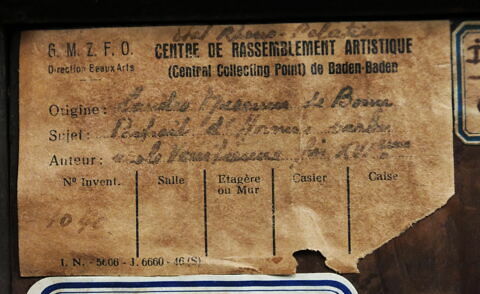 G. M. Z. F. O.
Direction Beaux Arts
CENTRE DE RASSEMBLEMENT ARTISTIQUE
(Central Collecting Point) de Baden-Baden
Origine: Landes Museum de Bonn
Sujet: Portrait d'Homme
Auteur: école Vénitienne fin XVI
Nº Invent.
Salle
Etagère ou Mur
Casier
Caise
I. N. - 5606 - J. 6660 - 46 (S)